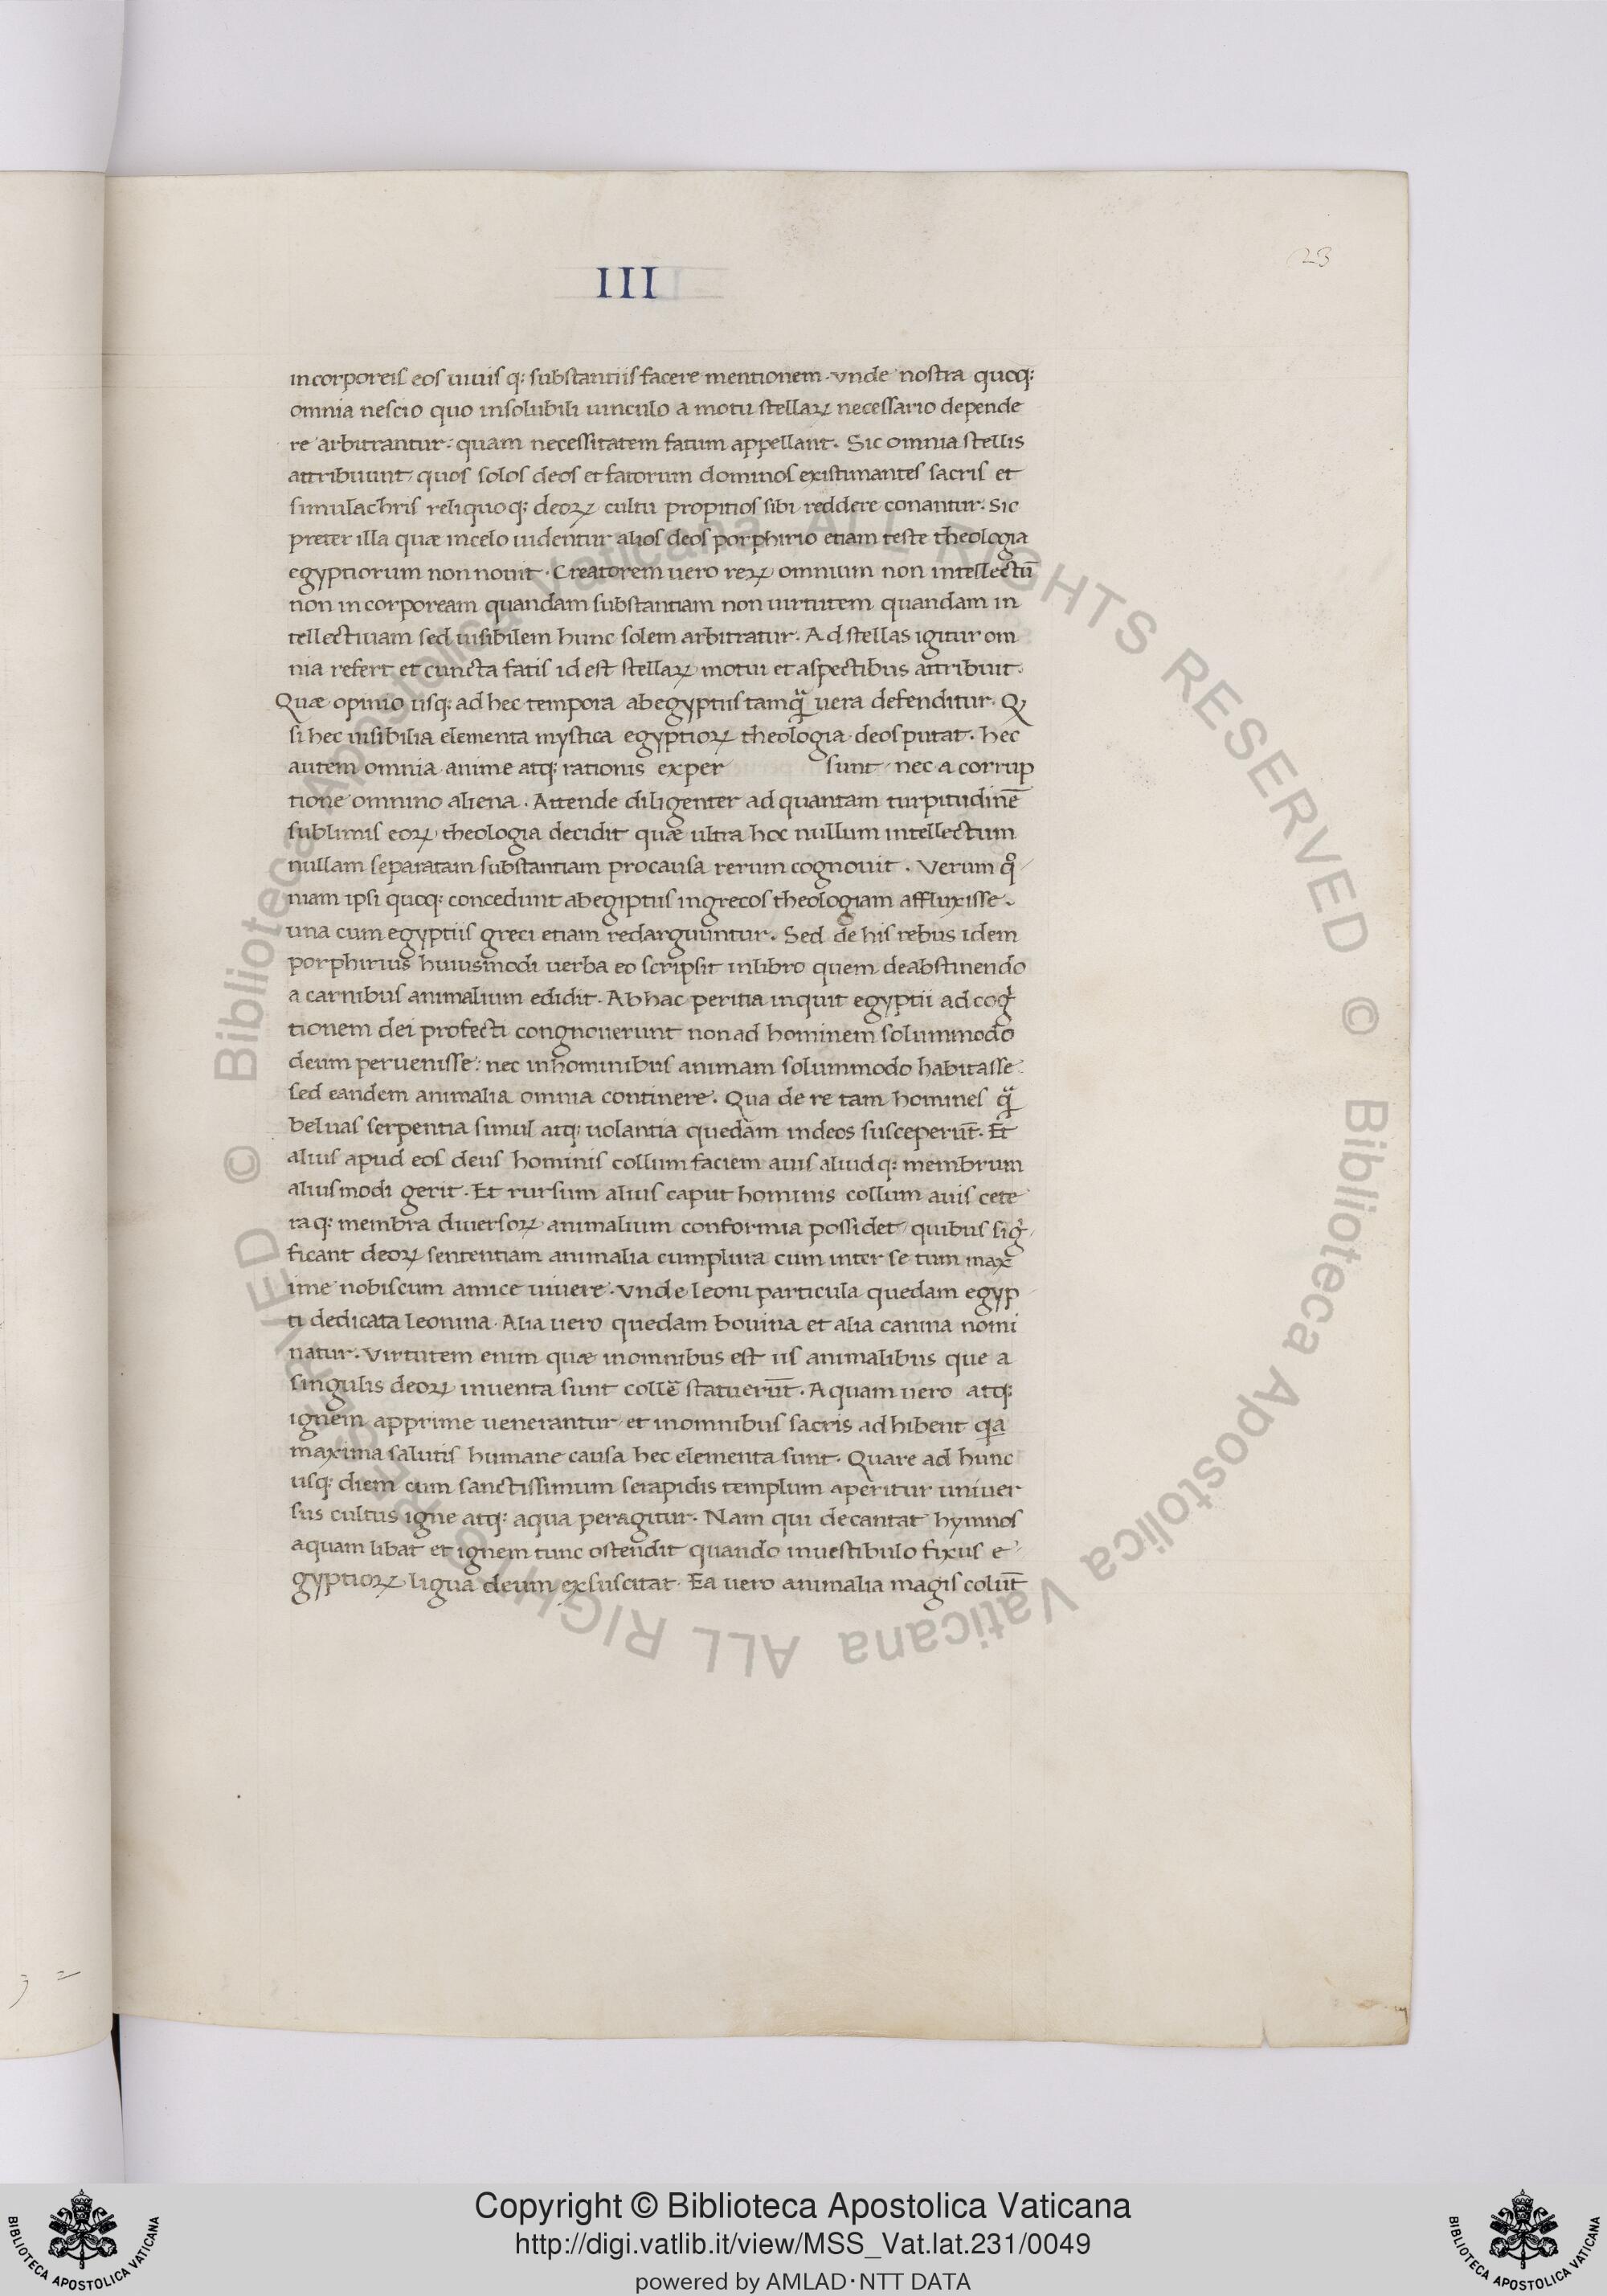 III
23
incorporeis eos uiuis q: substantiis facere mentionem. vnde nostra quoq:
omnia nescio quo insolubili uinculo a motu stellaꝝ necessario depende
re arbitrantur: quam necessitatem fatum appellant. Sic omnia stellis
attribuunt/ quos solos deos et fatorum dominos existimantes sacris et
simulachris reliquoq: deoꝝ cultu propitios sibi reddere conantur. Sic
preter illa quæ incelo uidentur alios deos porphirio etiam teste theologia
egyptiorum non nouit. Creatorem uero reꝝ omnium non intellectū
non incorpoream quandam substantiam non uirtutem quandam in
tellectiuam sed uisibilem hunc solem arbitratur. Ad stellas igitur om
nia refert et cuncta fatis id est stellaꝝ motui et aspectibus attribuit.
Quæ opinio usq: ad hec tempora abegyptiis tamqᷓ uera defenditur. Q
si hec uisibilia elementa mystica egyptioꝝ theologia deos putat. hec
autem omnia anime atq: rationis exper sunt nec a corrup
tione omnino aliena. Attende diligenter ad quantam turpitudinē
sublimis eoꝝ theologia decidit quæ ultra hoc nullum intellectum
nullam separatam substantiam procausa rerum cognouit. Verum qͦ
niam ipsi quoq: concedunt abegiptiis ingrecos theologiam affluxisse.
una cum egyptiis greci etiam redarguuntur. Sed de his rebus idem
porphirius huiusmodi uerba eo scripsit inlibro quem deabstinendo
a carnibus animalium edidit. Ab hac peritia inquit egyptii ad cogͥ
tionem dei profecti congnouerunt non ad hominem solummodo
deum peruenisse: nec inhominibus animam solummodo habitasse:
sed eandem animalia omnia continere. Qua de re tam homines qᷓ
beluas serpentia simul atq: uolantia quedam indeos susceperūt. Et
alius apud eos deus hominis collum faciem auis aliud q: membrum
aliusmodi gerit. Et rursum alius caput hominis collum auis cete
raq: membra diuersoꝝ animalium conformia possidet/ quibus sigͥ
ficant deoꝝ sententiam animalia cumplura cum inter se tum max
ime nobiscum amice uiuere. vnde leoni particula quedam egyp
ti dedicata leonina. Alia uero quedam bouina et alia canina nomi
natur. Virtutem enim quæ inomnibus est iis animalibus que a
singulis deoꝝ inuenta sunt collē statuerūt. Aquam uero atq:
ignem apprime uenerantur et inomnibus sacris adhibent qa
maxima salutis humane causa hec elementa sunt. Quare ad hunc
usq: diem cum sanctissimum serapidis templum aperitur uniuer
sus cultus igne atq: aqua peragitur. Nam qui decantat hymnos
aquam libat et ignem tunc ostendit quando inuestibulo fixus e
gyptioꝝ ligua deum exsuscitat. Ea uero animalia magis colūt
© Biblioteca Apostolica Vaticana ALL RIGHTS RESERVED © Biblioteca Apostolica Vaticana ALL RIGHTS RESERVED
Copyright © Biblioteca Apostolica Vaticana
http://digi.vatlib.it/view/MSS_Vat.lat.231/0049
powered by AMLAD·NTT DATA
BIBLIOTECA APOSTOLICA VATICANA
BIBLIOTECA APOSTOLICA VATICANA